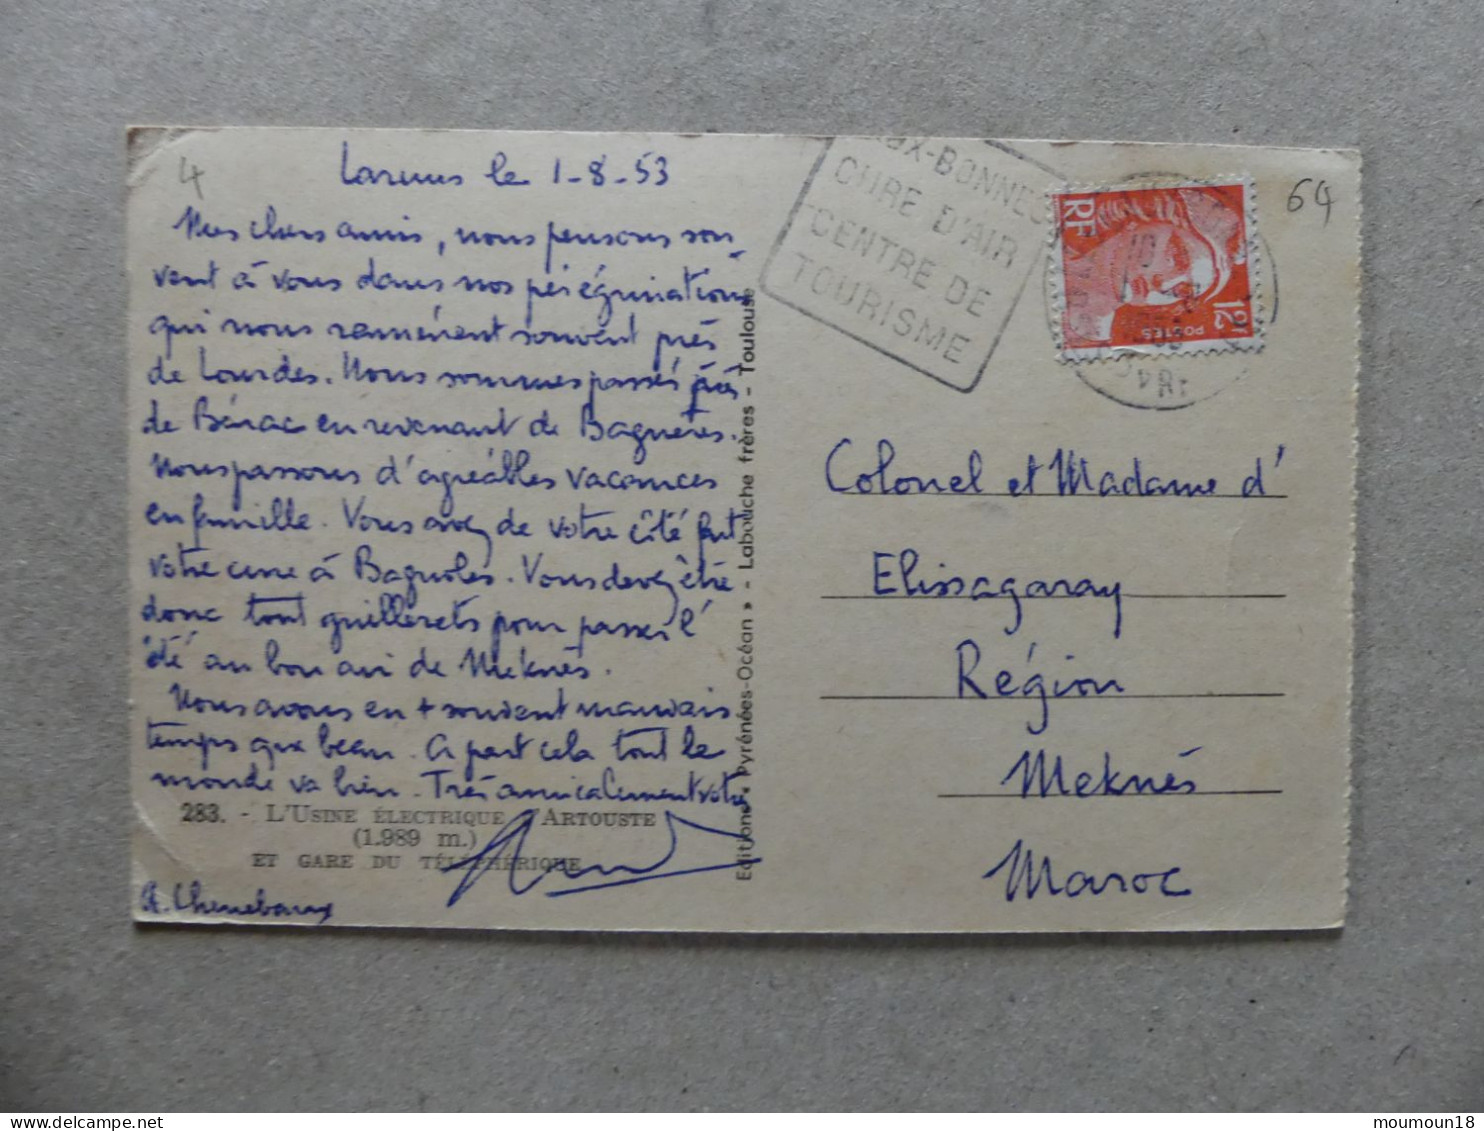 4
Laruns le 1-8-53
Mes chers amis, nous pensons sou
vent à vous dans nos pérégrinations
qui nous ramènent souvent près
de Lourdes. Nous sommes passés près
de Bénac en revenant de Bagnères.
Nous passons d'agréables vacances
en famille. Vous avez de votre côté fait
votre cure à Bagnoles. Vous devez être
donc tout guillerets pour passer l'
été au bon air de Meknès.
Nous avons eu + souvent mauvais
temps que beau. A part cela tout le
monde va bien. Très amicalement votre
283. - L'USINE ÉLECTRIQUE D'ARTOUSTE
(1.989 m.)
ET GARE DU TÉLÉPHÉRIQUE
Editions « Pyrénées-Océan » - Labouche frères - Toulouse
EAUX-BONNES
CURE D'AIR
CENTRE DE
TOURISME
RF
12F
POSTES
64
Colonel et Madame d'
Elissagaray
Région
Meknès
Maroc
moumoun18